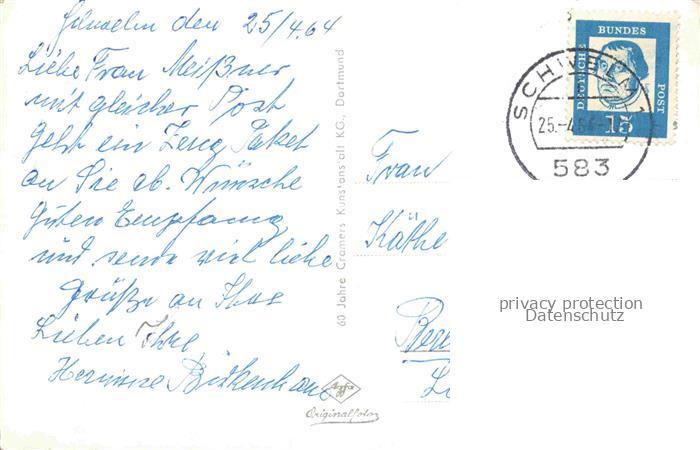 Schwelm den 25/4.64
Liebe Frau Meißner
mit gleicher Post
geht ein Zeug Paket
an Sie ab. Wünsche
guten Empfang
und sende viel liebe
Grüße an Ihre
Lieben Ihre
Hermine
60 Jahre Cramers Kunstanstalt KG., Dortmund
Agfa
Originalfoto
Frau
Käthe
DEUTSCHE BUNDES POST
15
SCHWELM 1
25.-4.64
583
privacy protection
Datenschutz